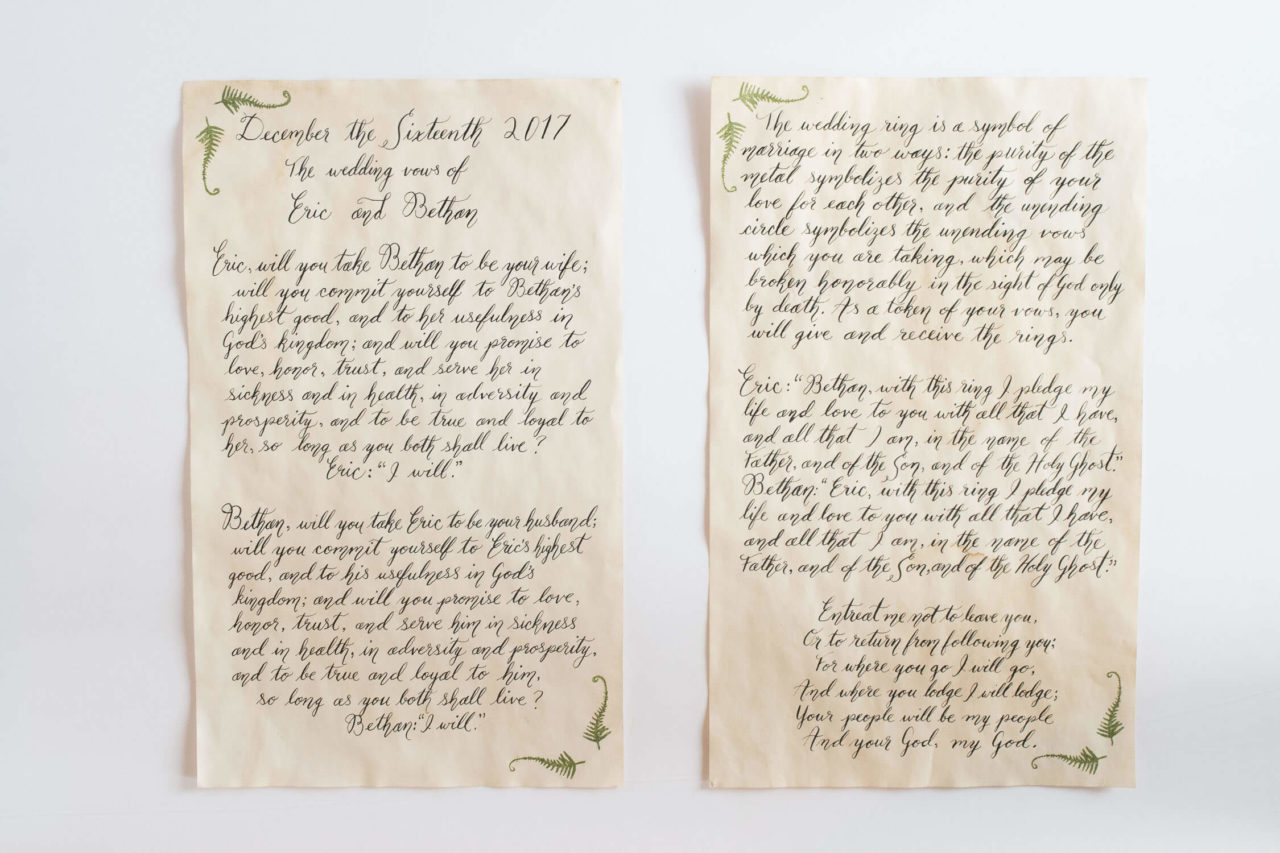 December the Sixteenth 2017
The wedding vows of
Eric and Bethan
Eric, will you take Bethan to be your wife;
will you commit yourself to Bethan's
highest good, and to her usefulness in
God's kingdom; and will you promise to
love, honor, trust, and serve her in
sickness and in health, in adversity and
prosperity, and to be true and loyal to
her, so long as you both shall live?
Eric: "I will."
Bethan, will you take Eric to be your husband;
will you commit yourself to Eric's highest
good, and to his usefulness in God's
kingdom; and will you promise to love,
honor, trust, and serve him in sickness
and in health, in adversity and prosperity,
and to be true and loyal to him,
so long as you both shall live?
Bethan: "I will."
The wedding ring is a symbol of
marriage in two ways: the purity of the
metal symbolizes the purity of your
love for each other, and the unending
circle symbolizes the unending vows
which you are taking, which may be
broken honorably in the sight of God only
by death. As a token of your vows, you
will give and receive the rings.
Eric: "Bethan, with this ring I pledge my
life and love to you with all that I have,
and all that I am, in the name of the
Father, and of the Son, and of the Holy Ghost."
Bethan: "Eric, with this ring I pledge my
life and love to you with all that I have,
and all that I am, in the name of the
Father, and of the Son, and of the Holy Ghost."
Entreat me not to leave you,
Or to return from following you;
For where you go I will go,
And where you lodge I will lodge;
Your people will be my people
And your God, my God.